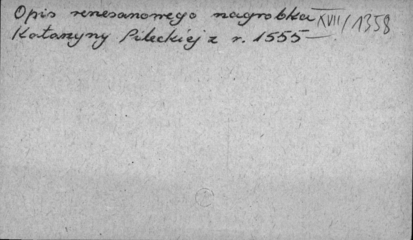 Opis renesanowego nagrobka XVII/1358
Katarzyny Pileckiej z r. 1555